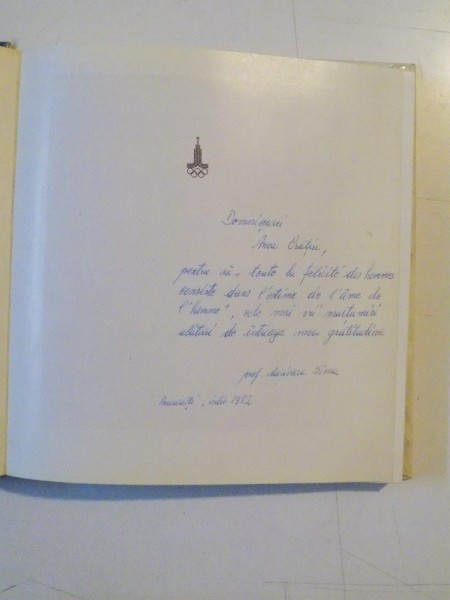 Domnișoarei
Anca Orățiu,
pentru că „toute la felicité des hommes
consiste dans l'estime de l'âme de
l'homme", cele mai vii mulțumiri
alături de întreaga mea gratitudine
prof. Sima
, iulie 1982